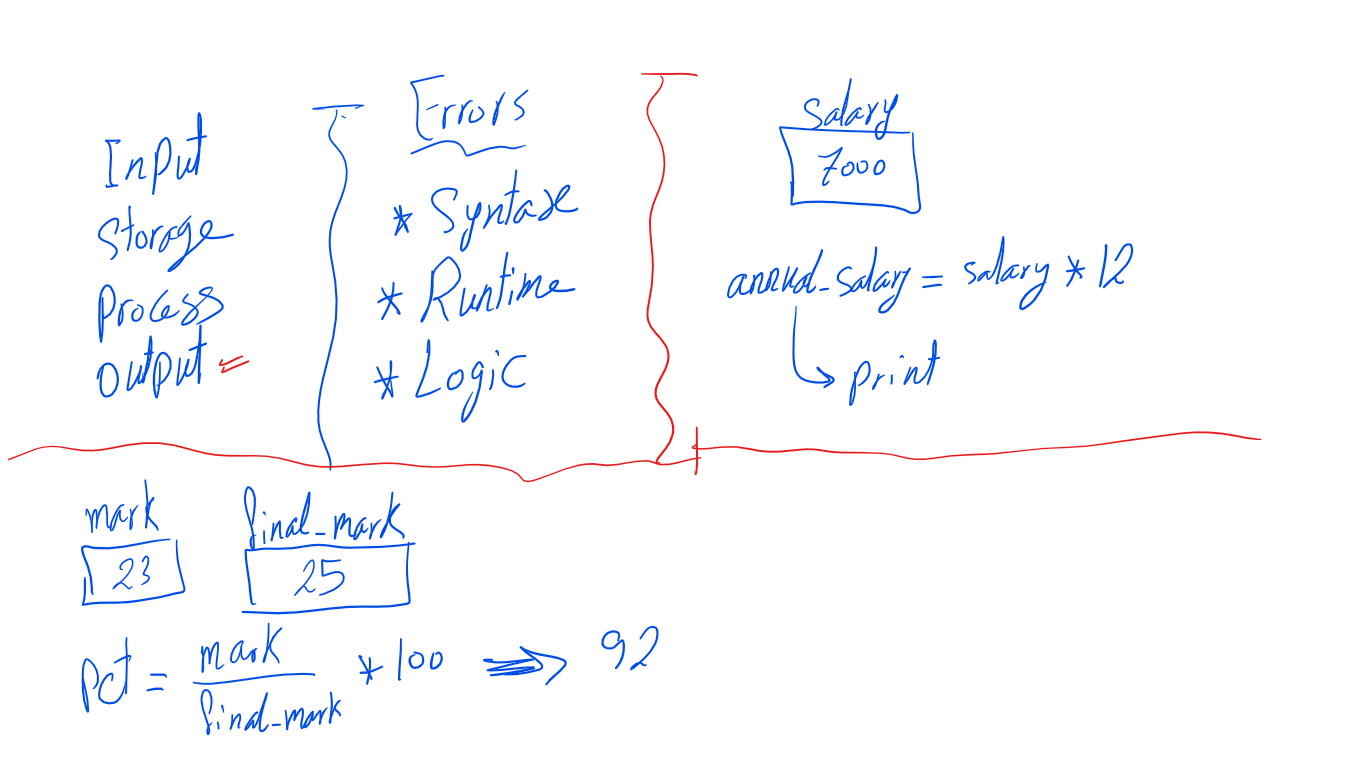 Input
Storage
Process
Output
Errors
* Syntax
* Runtime
* Logic
Salary
7000
annual_salary = salary * 12
print
mark
23
final_mark
25
pct = mark / final_mark * 100 ⇒ 92